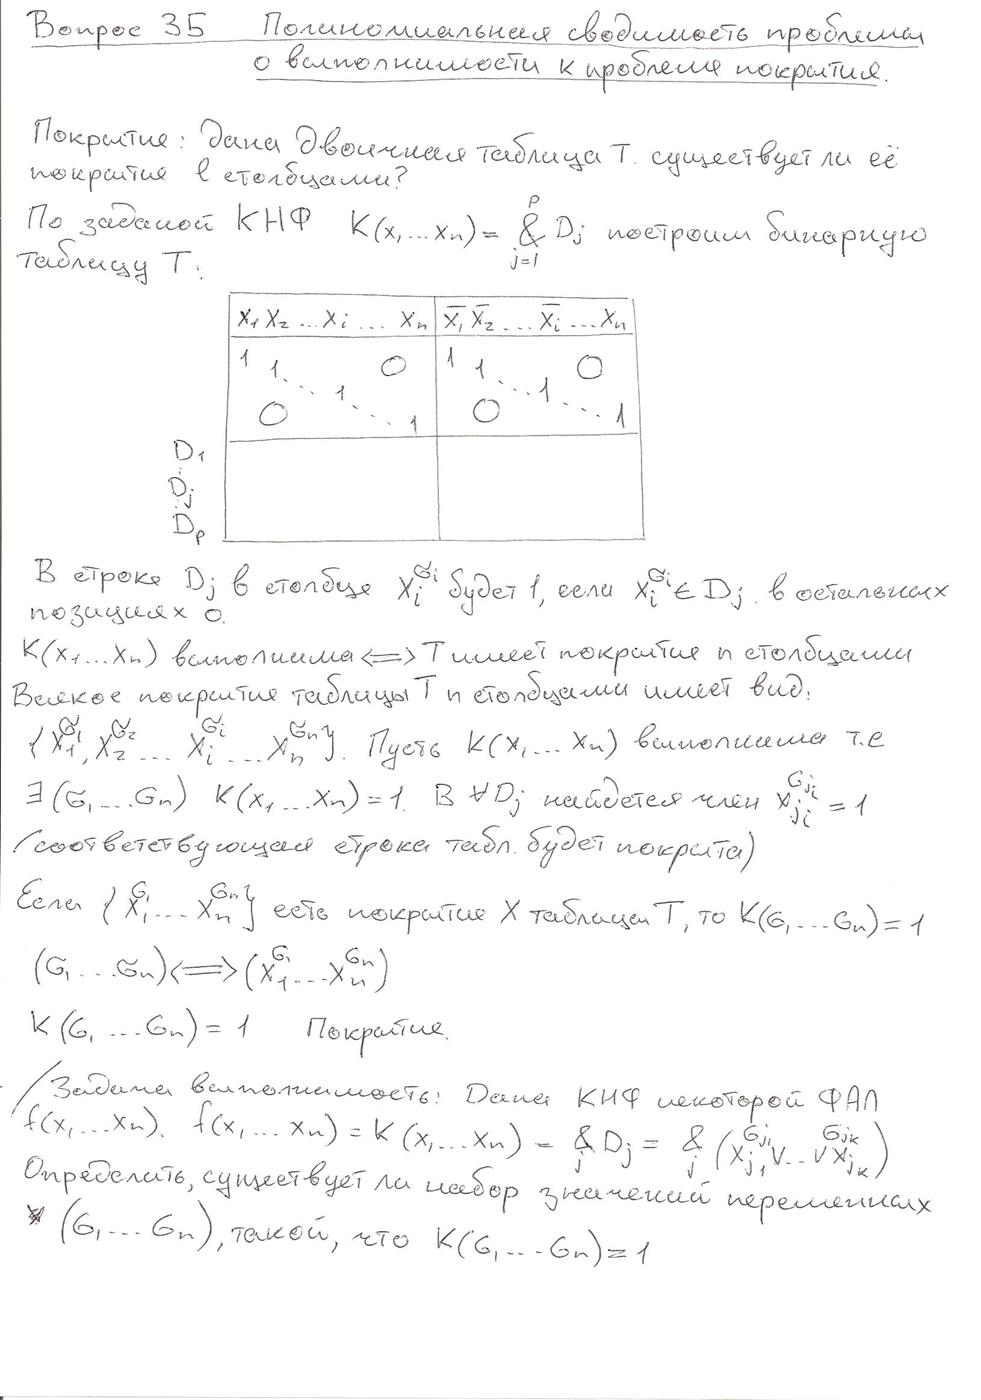 Вопрос 35 Полиномиальная сводимость проблемы
о выполнимости к проблеме покрытия.
Покрытие: Дана двоичная таблица T. существует ли её
покрытие l столбцами?
По заданой КНФ K(x₁...xₙ) = &ⱼ₌₁ᵖ Dⱼ построим бинарную
таблицу T:
x₁ x₂ ... xᵢ ... xₙ x̅₁ x̅₂ ... x̅ᵢ ... xₙ
1 1 ... 1 ... 1 0 0 1 1 ... 1 ... 1 0 0
D₁
Dⱼ
Dₚ
В строке Dⱼ в столбце xᵢ^σᵢ будет 1, если xᵢ^σᵢ ∈ Dⱼ. в остальных
позициях 0.
K(x₁...xₙ) выполнима <=> T имеет покрытие n столбцами
Всякое покрытие таблицы T n столбцами имеет вид:
{x₁^σ₁, x₂^σ₂ ... xᵢ^σᵢ ... xₙ^σₙ}. Пусть K(x₁...xₙ) выполнима т.е
∃(σ₁...σₙ) K(x₁...xₙ)=1. В ∀Dⱼ найдется член xⱼᵢ^σⱼᵢ = 1
(соответствующая строка табл. будет покрыта)
Если {x₁^σ₁ ... xₙ^σₙ} есть покрытие X таблицы T, то K(σ₁...σₙ)=1
(σ₁...σₙ) <=> (x₁^σ₁ ... xₙ^σₙ)
K(σ₁...σₙ) = 1 Покрытие.
/Задача выполнимость: Дана КНФ некоторой ФАЛ
f(x₁...xₙ). f(x₁...xₙ) = K(x₁...xₙ) = &ⱼ Dⱼ = &ⱼ (xⱼ₁^σⱼ₁ ∨...∨ xⱼₖ^σⱼₖ)
Определить, существует ли набор значений переменных
(σ₁...σₙ), такой, что K(σ₁...σₙ)=1